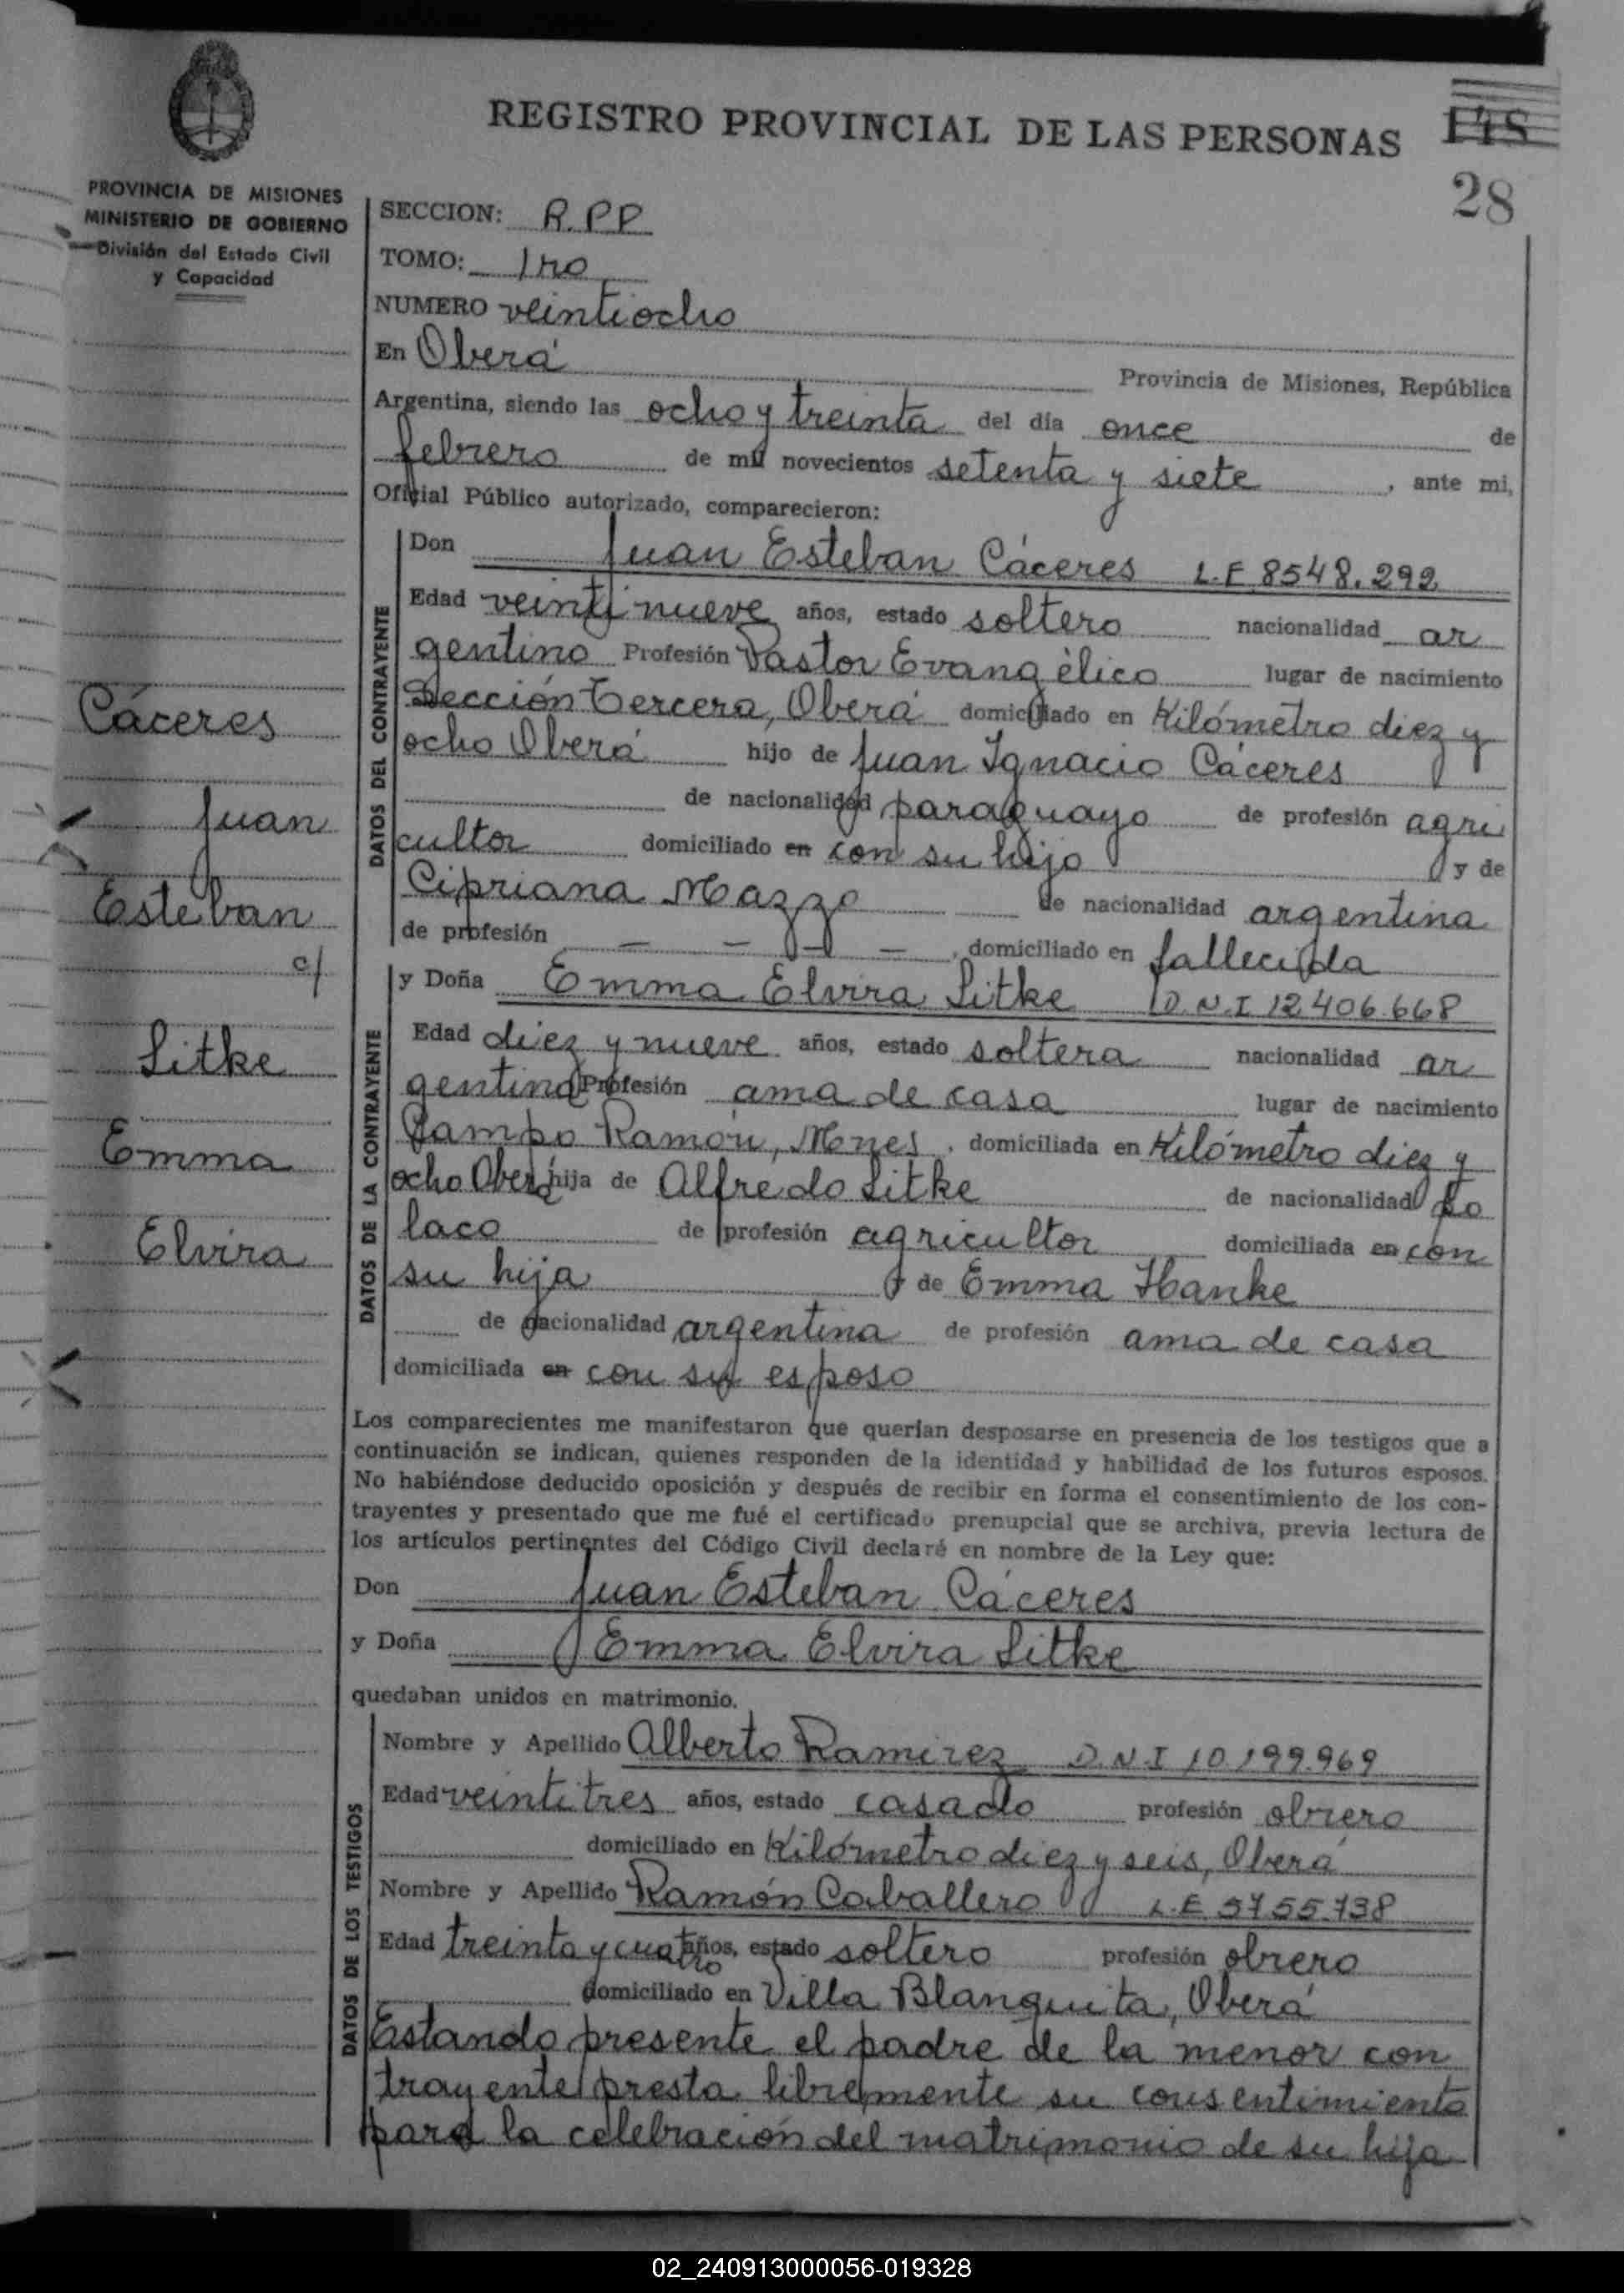 REGISTRO PROVINCIAL DE LAS PERSONAS
148
28
PROVINCIA DE MISIONES
MINISTERIO DE GOBIERNO
División del Estado Civil
y Capacidad
SECCION: R.PP
TOMO: 1ro
NUMERO veintiocho
En Oberá
Provincia de Misiones, República
Argentina, siendo las ocho y treinta del día once de
febrero de mil novecientos setenta y siete, ante mi,
Oficial Público autorizado, comparecieron:
DATOS DEL CONTRAYENTE
Don Juan Esteban Cáceres L.E 8548.292
Edad veinti nueve años, estado soltero nacionalidad ar
gentino Profesión Pastor Evangèlico lugar de nacimiento
Sección Tercera, Oberá domiciliado en Kilómetro diez y
ocho Oberá hijo de Juan Ignacio Cáceres
de nacionalidad paraguayo de profesión agri
cultor domiciliado en con su hijo y de
Cipriana Mazzo de nacionalidad argentina
de profesión — — — —, domiciliado en fallecida
Cáceres
Juan
Esteban
c/
Sitke
Emma
Elvira
DATOS DE LA CONTRAYENTE
y Doña Emma Elvira Sitke D.N.I 12.406.668
Edad diez y nueve años, estado soltera nacionalidad ar
gentina Profesión ama de casa lugar de nacimiento
Campo Ramón, Mnes, domiciliada en Kilómetro diez y
ocho Oberá hija de Alfredo Sitke de nacionalidad po
laco de profesión agricultor domiciliada en con
su hija y de Emma Hanke
de nacionalidad argentina de profesión ama de casa
domiciliada en con su esposo
Los comparecientes me manifestaron que querían desposarse en presencia de los testigos que a
continuación se indican, quienes responden de la identidad y habilidad de los futuros esposos.
No habiéndose deducido oposición y después de recibir en forma el consentimiento de los con-
trayentes y presentado que me fué el certificado prenupcial que se archiva, previa lectura de
los artículos pertinentes del Código Civil declaré en nombre de la Ley que:
Don Juan Esteban Cáceres
y Doña Emma Elvira Sitke
quedaban unidos en matrimonio.
DATOS DE LOS TESTIGOS
Nombre y Apellido Alberto Ramirez D.N.I 10.199.969
Edad veintitres años, estado casado profesión obrero
domiciliado en Kilómetro diez y seis, Oberá
Nombre y Apellido Ramón Caballero L.E 5755.738
Edad treinta y cuatro años, estado soltero profesión obrero
domiciliado en Villa Blanquita, Oberá
Estando presente el padre de la menor con
trayente presta libremente su consentimiento
para la celebración del matrimonio de su hija
02_240913000056-019328